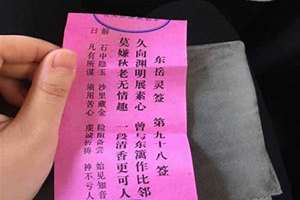 东岳灵签 第九十八签
久向渊明展素心 曾与东篱作比邻
莫嫌秋老无情趣 一段清香更可人
解曰
石中隐玉 沙里藏金 险阻备尝 始见知音
凡有所谋 须用苦心 虔诚祈祷 神不亏人